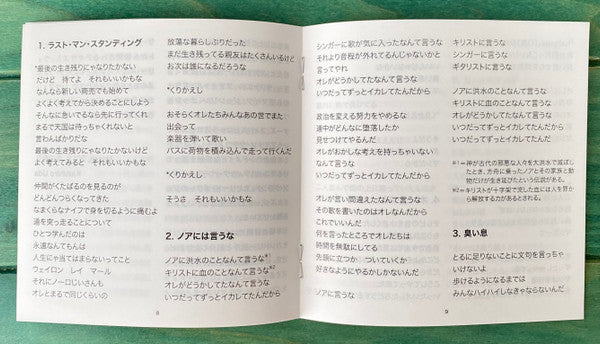 1. ラスト・マン・スタンディング
*最後の生き残りにゃなりたかない
だけど 待てよ それもいいかもな
なんなら新しい商売でも始めて
よくよく考えてから決めることにしよう
そんなに急いでるなら先に行ってくれ
まるで天国は待っちゃくれないと
言わんばかりだな
最後の生き残りにゃなりたかないけど
よく考えてみると それもいいかもな
仲間がくたばるのを見るのが
どんどんつらくなってきた
なまくらなナイフで身を切るように痛むよ
道を突っ走ることについて
ひとつ学んだのは
永遠なんてもんは
人生にゃ当てはまらないってこと
ウェイロン レイ マール
それにノーロじいさんも
オレとまるで同じくらいの
放蕩な暮らしぶりだった
まだ生き残ってる親友はたくさんいるけど
お次は誰になるだろうな
*くりかえし
おそらくオレたちみんなあの世でまた
出会って
楽器を弾いて歌い
バスに荷物を積み込んで走って行くんだ
*くりかえし
そうさ それもいいかもな
2. ノアには言うな
ノアに洪水のことなんて言うな*1
キリストに血のことなんて言うな*2
オレがどうかしてたなんて言うな
いつだってずっとイカしてたんだから
8
シンガーに歌が気に入ったなんて言うな
それより音程が外れてるんじゃないかと
言ってやれ
オレがどうかしてたなんて言うな
いつだってずっとイカしてたんだから
政治を変える努力をやめるな
連中がどんなに堕落したか
見せつけてやるんだ
オレがおかしな考えを持っちゃいない
なんて言うな
いつだってずっとイカしてたんだから
オレが言い間違えたなんて言うな
その歌を書いたのはオレなんだから
これでいいんだ
何を言ったところでオレたちは
時間を無駄にしてる
先頭に立つか ついていくか
好きなようにやるかしかないんだ
ノアに言うな
キリストに言うな
シンガーに言うな
ギタリストに言うな
ノアに洪水のことなんて言うな
キリストに血のことなんて言うな
オレがどうかしてたなんて言うな
いつだってずっとイカしてたんだから
いつだってずっとイカしてたんだから
*1=神が古代の邪悪な人々を大洪水で滅ぼした
とき、方舟に乗ったノアとその家族と動
物だけが生き延びたという伝説がある。
*2=キリストが十字架で流した血には人を罪か
ら解放する力があるとされる。
3. 臭い息
とるに足りないことに文句を言っちゃ
いけないよ
歩けるようになるまでは
みんなハイハイしなきゃならないんだ
9